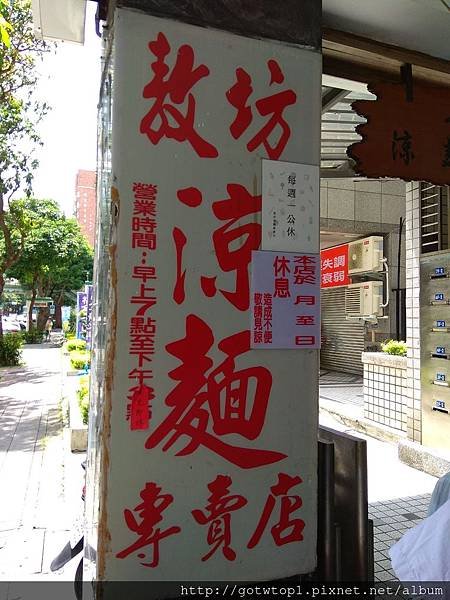 敖坊
涼麵
專賣店
營業時間：早上7點至下午
每週一公休
本店於 月 至 日
休息
造成不便
敬請見諒
失調
衰弱
涼
http://gotwtop1.pixnet.net/album